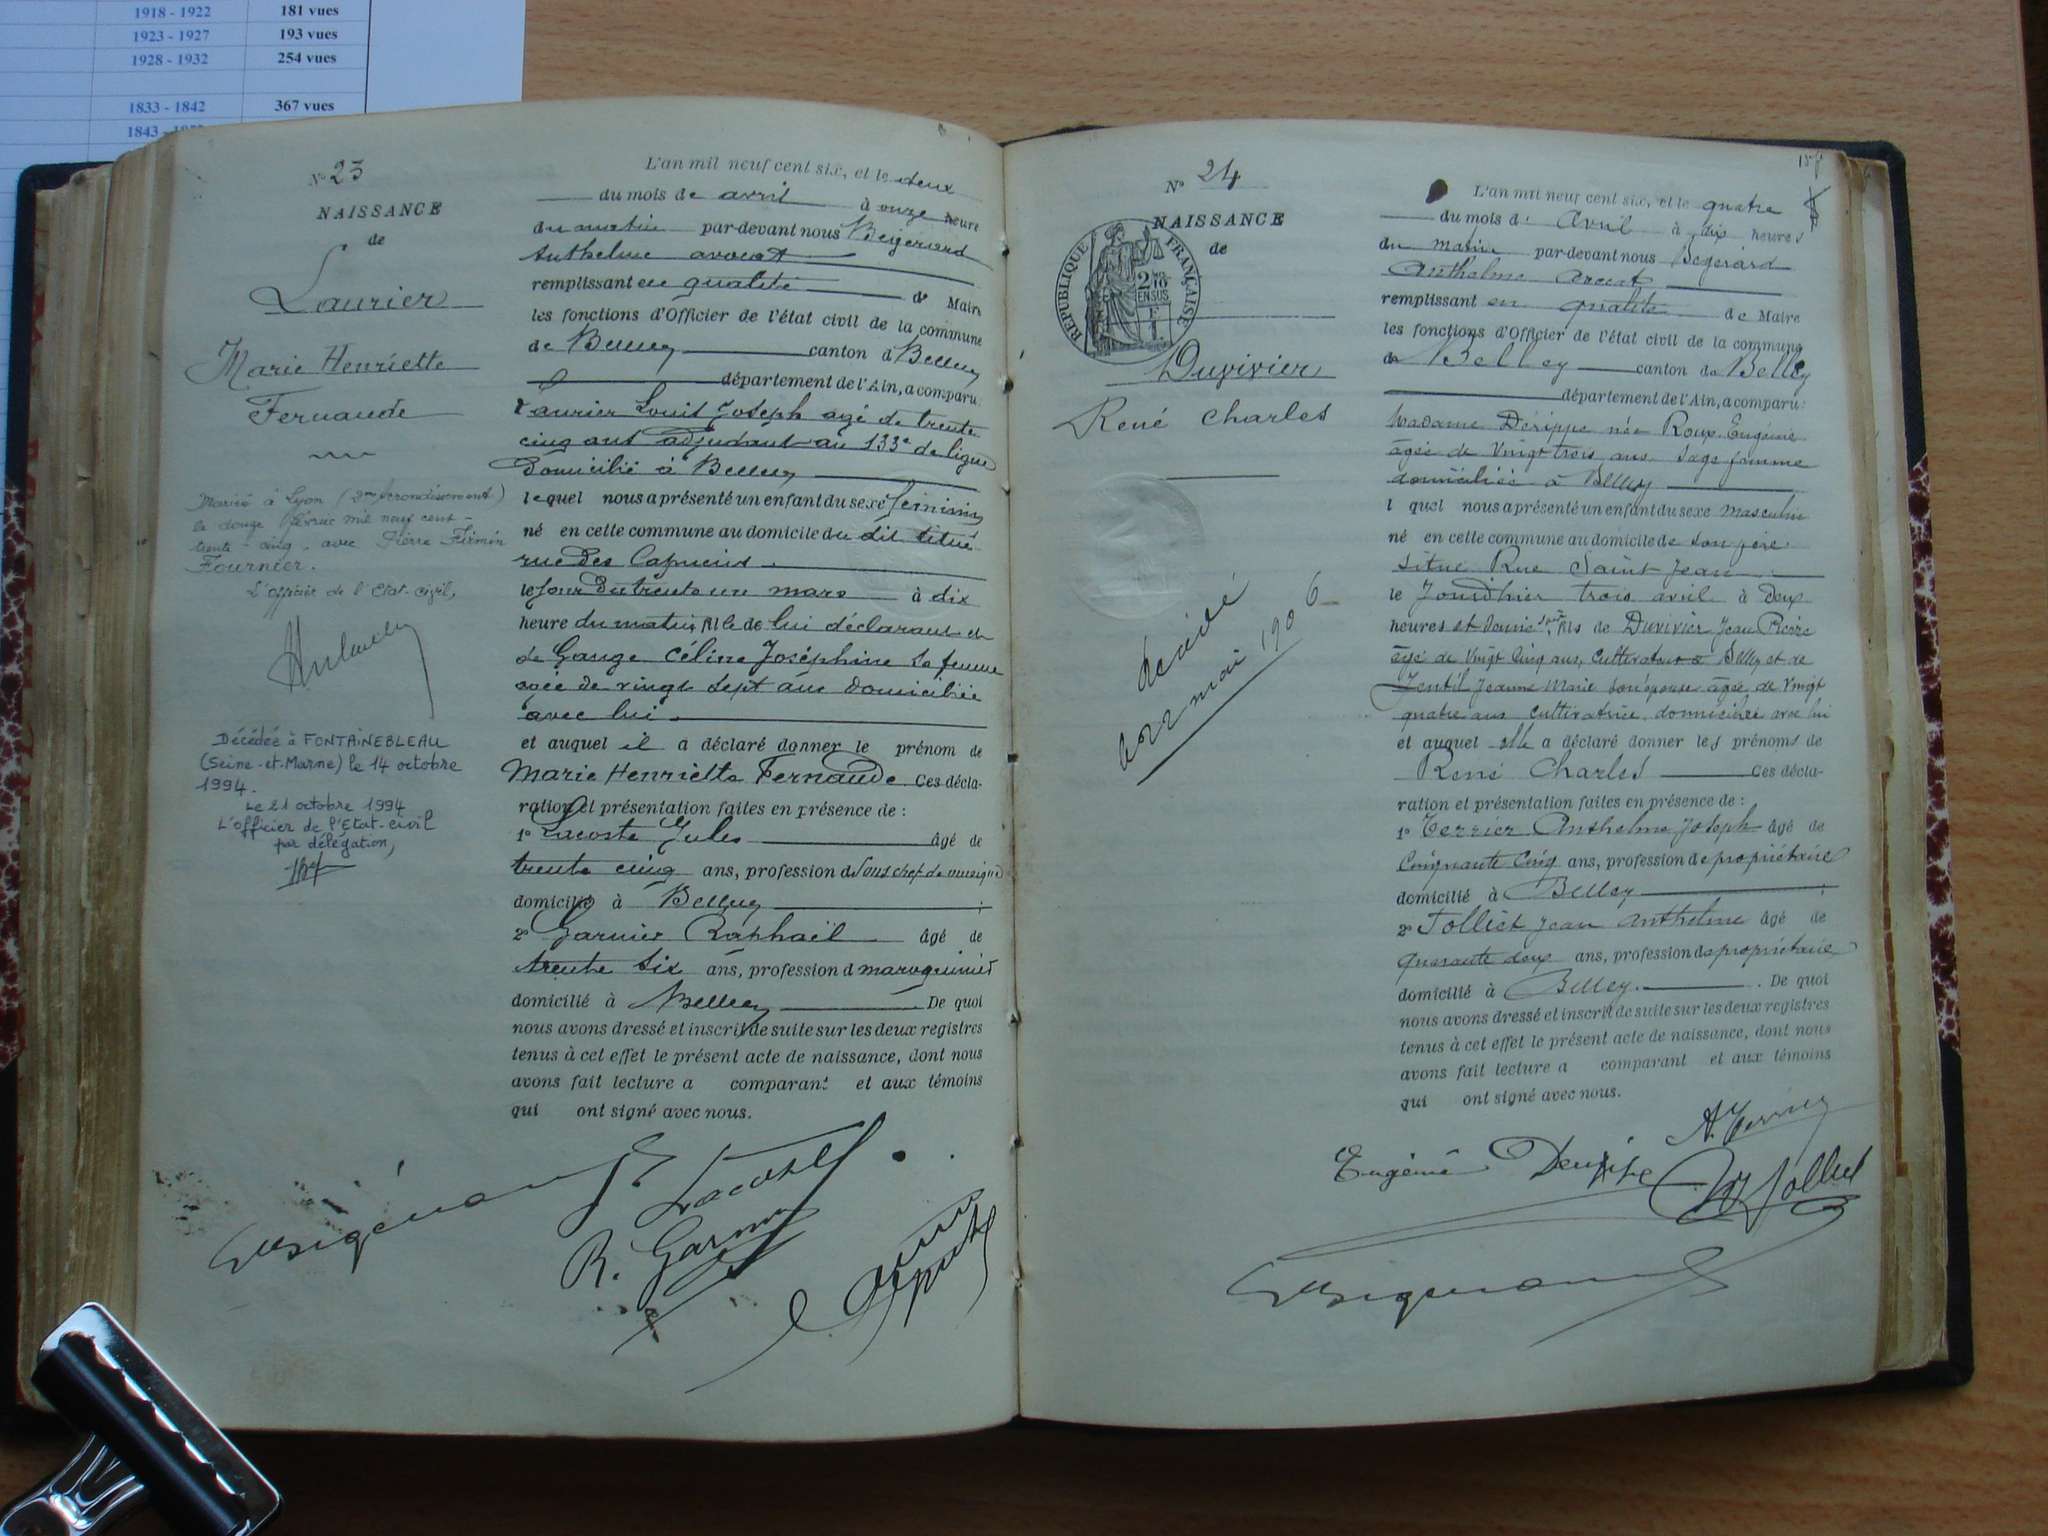 1918 - 1922 181 vues
1923 - 1927 193 vues
1928 - 1932 254 vues
1833 - 1842 367 vues
1843 -
N° 23
NAISSANCE
de
Laurier
Marie Henriette
Fernande
Mariée à Lyon (2me Arrondissement)
le douze février mil neuf cent
trente-cinq, avec Pierre Firmin
Fournier.
L'officier de l'Etat-civil,
Décédée à FONTAINEBLEAU
(Seine-et-Marne) le 14 octobre
1994.
Le 21 octobre 1994
L'officier de l'Etat-civil
par délégation,
L'an mil neuf cent six, et le deux
du mois de avril à onze heure
du matin par-devant nous Beigerard
Anthelme avocat
remplissant en qualité de Maire
les fonctions d'Officier de l'état civil de la commune
de Belley canton d Belley
département de l'Ain, a comparu:
Laurier Louis Joseph agé de trente
cinq ans adjudant au 133e de ligne
domicilié à Belley
lequel nous a présenté un enfant du sexe féminin
né en cette commune au domicile du dit situé
rue des Capucins
le jour du trente un mars à dix
heure du matin, fille de lui déclarant et
de Gauge Céline Joséphine sa femme
agée de vingt sept ans domiciliée
avec lui
et auquel il a déclaré donner le prénom de
Marie Henriette Fernande Ces décla-
ration et présentation faites en présence de :
1° Lacoste Jules âgé de
trente cinq ans, profession d Sous chef de musique
domicilié à Belley ;
2° Garnier Raphaël âgé de
trente six ans, profession d maroquinier
domicilié à Belley De quoi
nous avons dressé et inscrit de suite sur les deux registres
tenus à cet effet le présent acte de naissance, dont nous
avons fait lecture a comparant et aux témoins
qui ont signé avec nous.
Lacoste
R. Garnier
N° 24
NAISSANCE
de
RÉPUBLIQUE FRANÇAISE
2/10 EN SUS
Duvivier
René Charles
décédé
le 22 mai 1906
L'an mil neuf cent six, et le quatre
du mois d' Avril à dix heures
du matin par-devant nous Begerard
Anthelme avocat
remplissant en qualité de Maire
les fonctions d'Officier de l'état civil de la commune
de Belley canton de Belley
département de l'Ain, a comparu:
Madame Dérippe née Roux Eugénie
âgée de vingt trois ans sage femme
domiciliée à Belley
l quel nous a présenté un enfant du sexe masculin
né en cette commune au domicile de son père
situé Rue Saint Jean
le Jourd'hier trois avril à deux
heures et demie soir, fils de Duvivier Jean Pierre
âgé de vingt cinq ans, cultivateur à Belley et de
Gentil Jeanne Marie son épouse âgée de vingt
quatre ans cultivatrice domiciliée avec lui
et auquel elle a déclaré donner les prénoms de
René Charles Ces décla-
ration et présentation faites en présence de :
1° Terrier Anthelme Joseph âgé de
Cinquante Cinq ans, profession de propriétaire
domicilié à Belley ;
2° Tolliet Jean Anthelme âgé de
quarante deux ans, profession de propriétaire
domicilié à Belley. De quoi
nous avons dressé et inscrit de suite sur les deux registres
tenus à cet effet le présent acte de naissance, dont nous
avons fait lecture a comparant et aux témoins
qui ont signé avec nous.
Eugénie
Tolliet